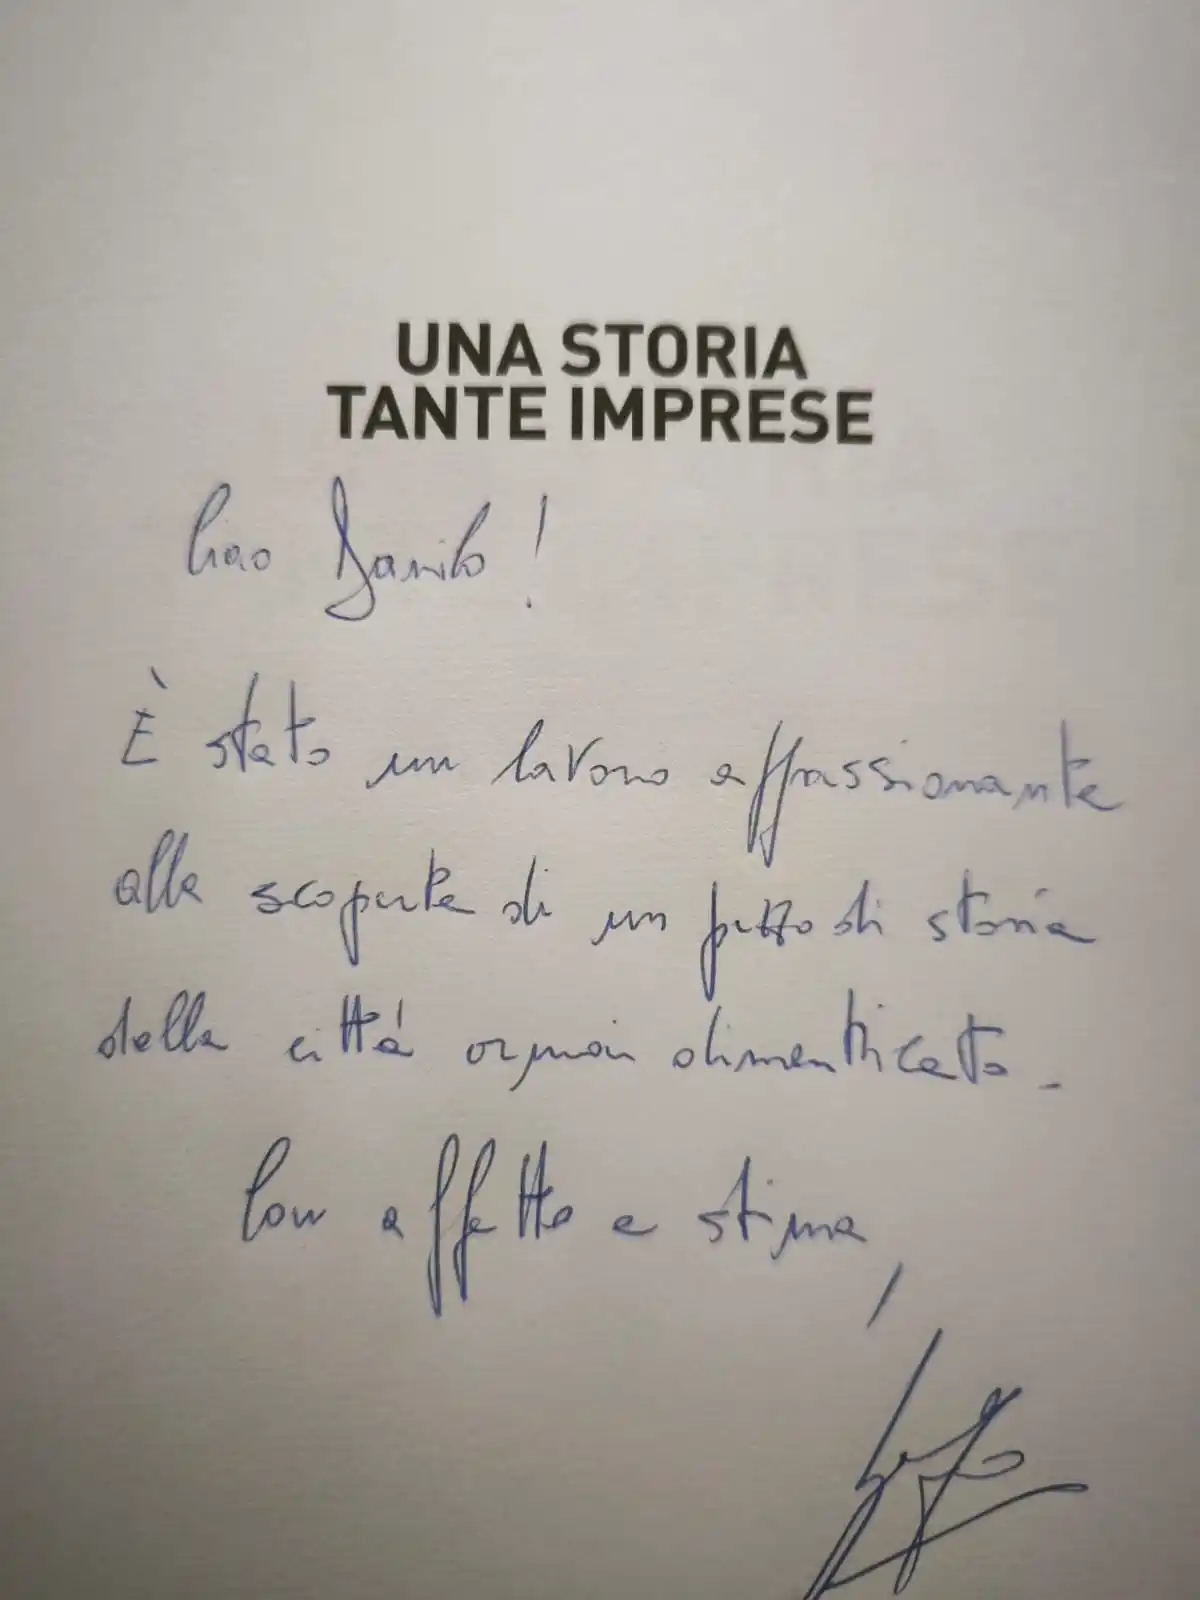 UNA STORIA
TANTE IMPRESE
Ciao Danilo!
È stato un lavoro appassionante
alla scoperta di un pezzo di storia
della città ormai dimenticata.
Con affetto e stima,